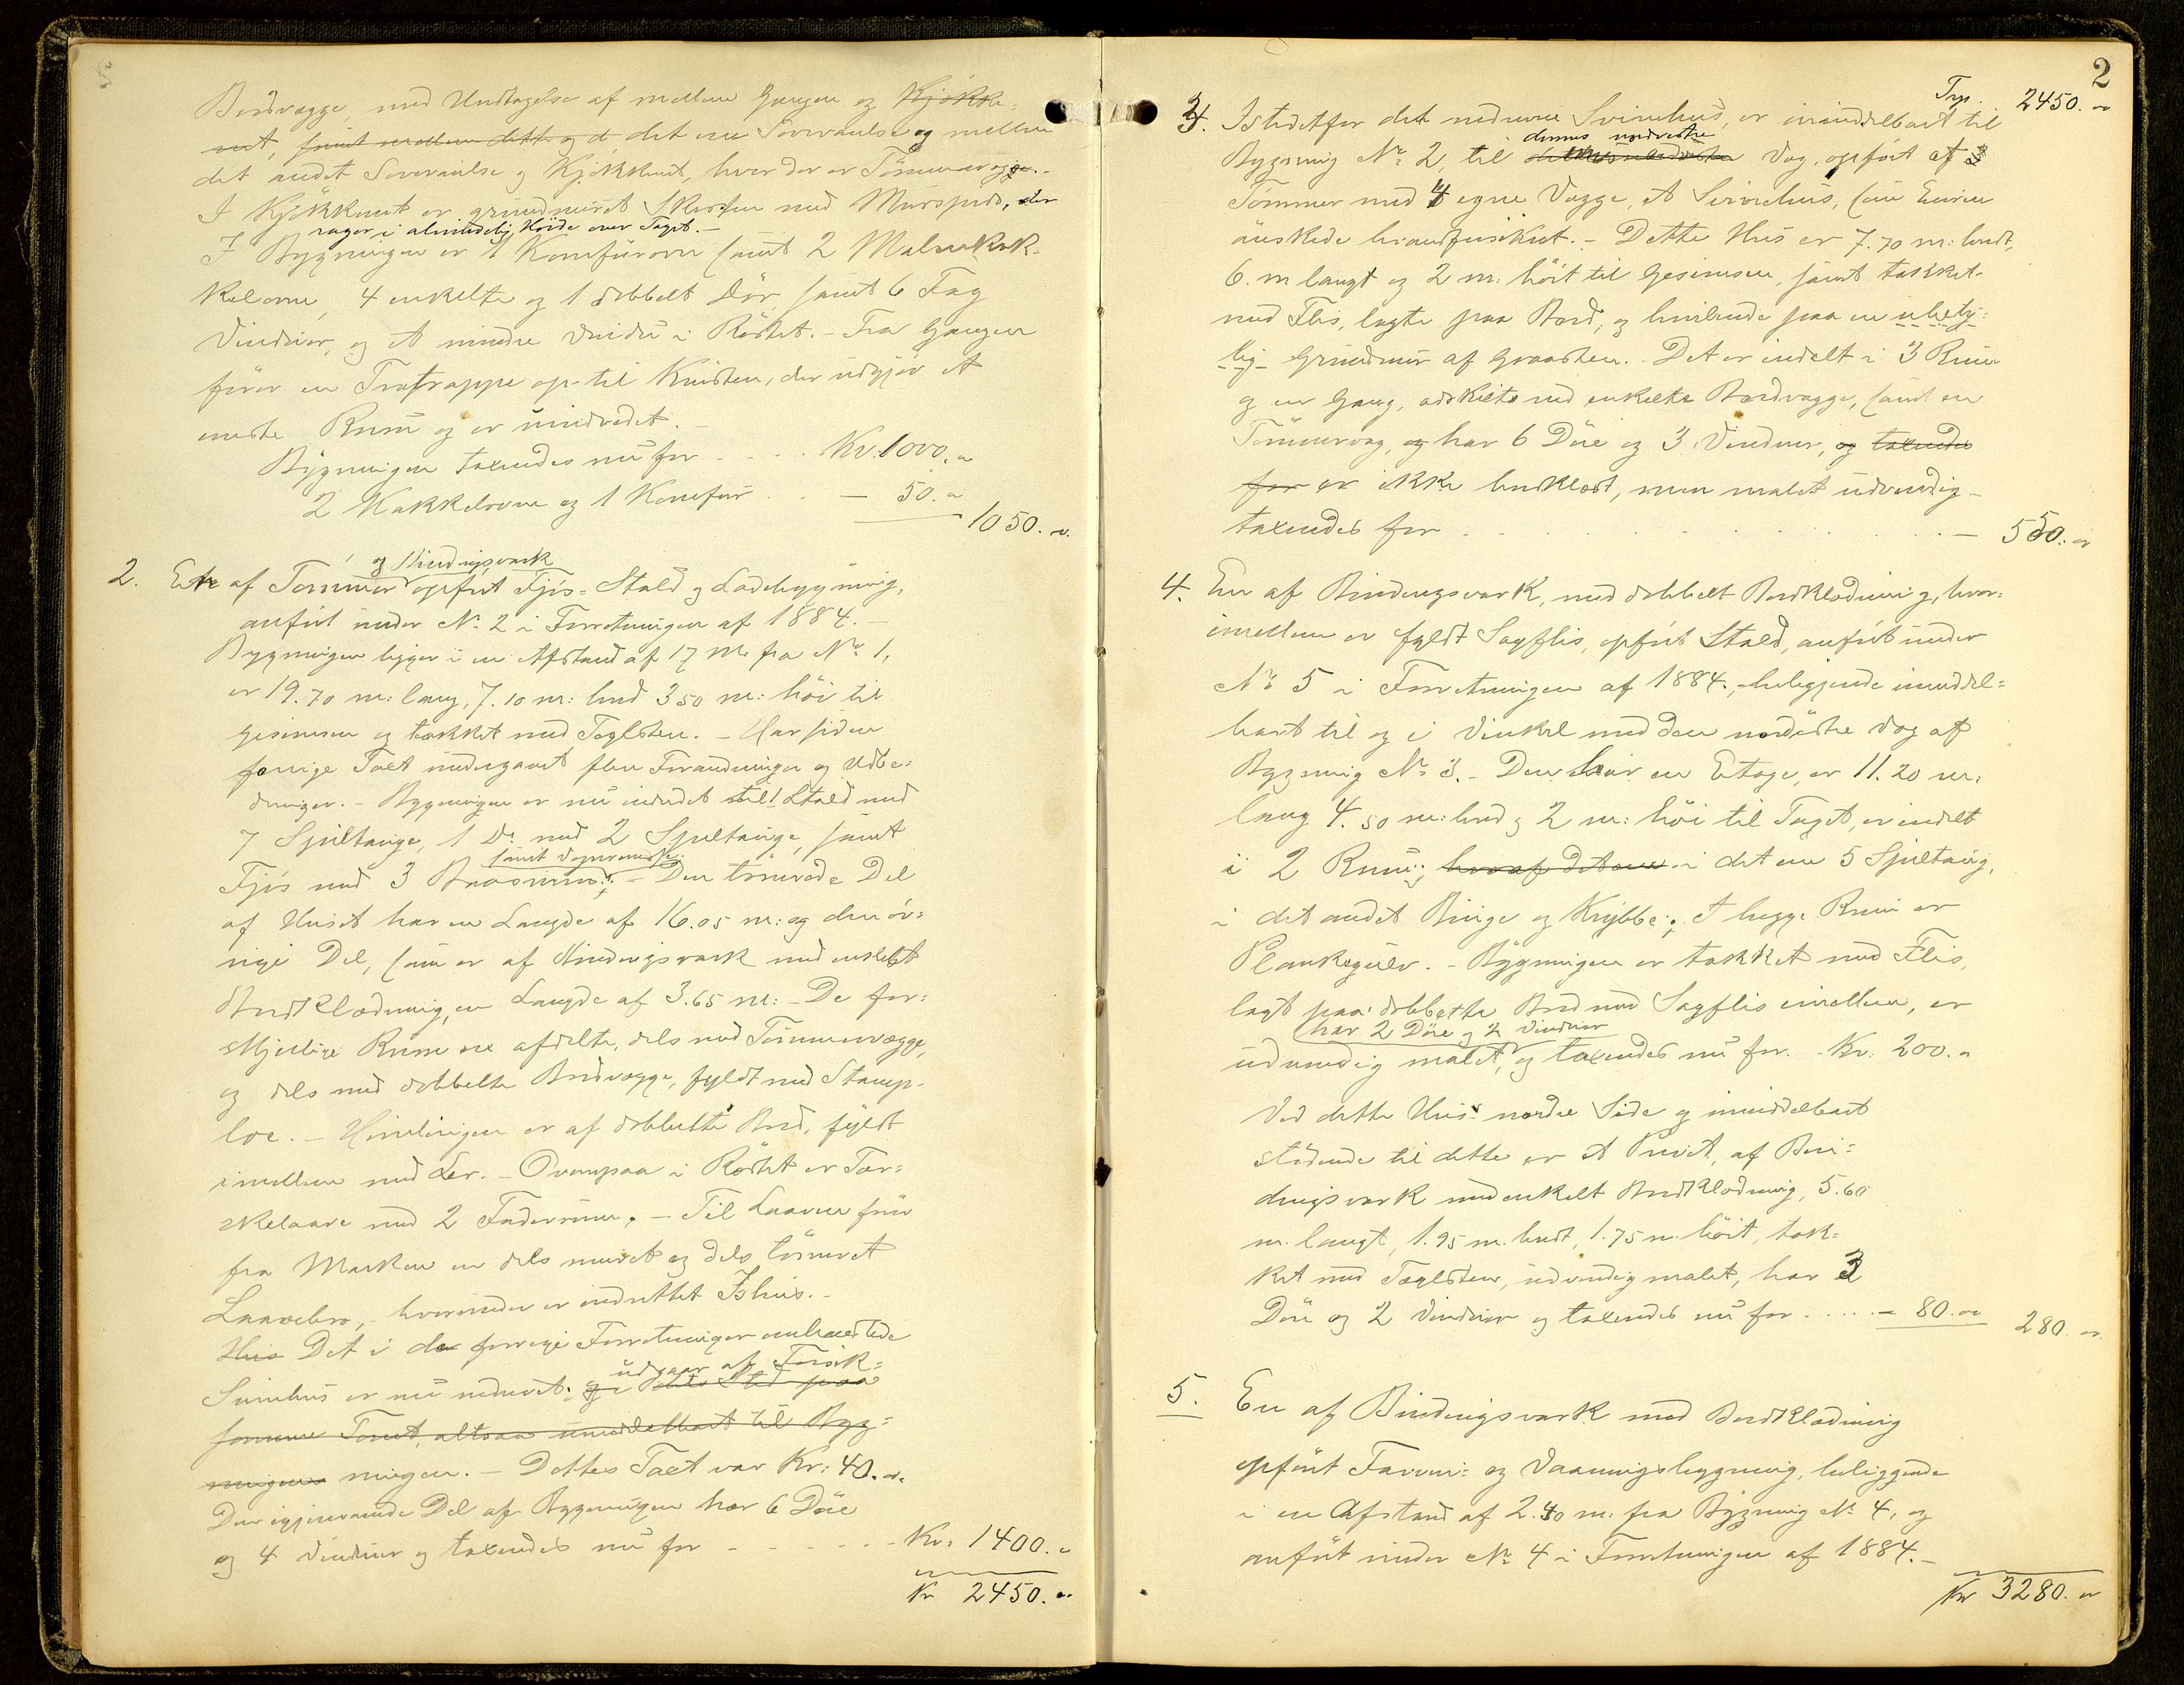 Bordvægge, med Undtagelse af mellem Gangen og Kjøkke-
net, samt mellem dette og d det ene Soveværelse og mellem
det andet Soveværelse og Kjøkkenet, hvor der er Tømmervægge.-
I Kjøkkenet er grundmuret Skorsten med Murspids, der
rager i almindelig Høide over Taget.-
I Bygningen er 1 Komfürovn samt 2 Malmkak-
kelovne, 4 enkelte og 1 dobbelt Dør, samt 6 Fag
Vinduer, og et mindre Vindu i Røstet.- Fra Gangen
fører en Trætrappe op til Kvisten, der udgjør et
eneste Rum og er uindredet.-
Bygningen taxendes nu for - - - . Kr. 1000.-
2 Kakkelovne og 1 Komfur . . — 50.-
1050.-
2. En af Tømmer og Bindingsværk opført Fjøs- Stald og Ladebygning,
anført under No 2 i Forretningen af 1884.-
Bygningen ligger i en Afstand af 17 M. fra No 1,
er 19.70 m: lang, 7.10 m: bred 3 50 m: høi til
Gesimsen og tækket med Taglsten. - Har siden
forrige Taxt undergaaet flere Forandringer og Udbe-
dringer. - Bygningen er nu indredet til 1 Stald med
7 Spiltauge, 1 Do med 2 Spiltauge, samt
Fjøs med 3 Baasrum, samt Vognremisse; - Den tømrede Del
af Huset har en Længde af 16.05 m: og den øv-
rige Del, som er af Bindingsværk med enkelt
Bordklædning, en Længde af 3.65 m:- De for-
skjellige Rum ere afdelte, dels med Tømmervægge,
og dels med dobbelte Bordvægge, fyldt med Stamp-
loe. - Himlingen er af dobbelte Bord, fyldt
imellem med Ler. - Ovenpaa i Røstet er Tør-
skelaave med 2 Foderrum. - Til Laaven fører
fra Marken en dels muret og dels tømret
Laavebro, - hvorunder er indrettet Ishus.-
Hus Det i de forrige Forretninger omhandlede
Svinehus er nu nedrevet; og i dets Sted paa udgaar af Forsik-
samme Tomt, altsaa umiddelbart til Byg-
ningen ningen. - Dettes Taxt var Kr: 40.-
Den igjenværende Del af Bygningen har 6 Døre
og 4 Vinduer og taxendes nu for - - - - - Kr. 1400.-
Kr 2450.-
2
Trp. 2450.-
3. Istedetfor det nedrevne Svinehus, er umiddelbart til
Bygning No 2, til dennes nordvestre Væg, opført af
Tømmer med 4 egne Vægge, et Svinehus, som Eieren
ønskede brandforsikret. - Dette Hus er 7.70 m: bredt,
6. m langt og 2 m: høit til Gesimsen, samt tækket
med Flis, lagte paa Bord, og hvilende paa en ubety-
lig Grundmur af Graasten. - Det er indelt i 3 Rum
og en Gang, adskilte ved enkelte Bordvægge, samt en
Tømmervæg, og har 6 Døre og 3 Vinduer, og taxendes
for er ikke bordklædt, men malet udvendig -
taxendes for - . . . . . . — 550.-
4. En af Bindingsværk, med dobbelt Bordklædning, hvor-
imellem er fyldt Sagflis, opført Stald, anført under
No 5 i Forretningen af 1884, - beliggende umiddel-
bart til og i Vinkel med den nordøstre Væg af
Bygning No 3. - Den har en Etage, er 11.20 m.
lang 4.50 m: bred og 2 m: høi til Taget, er indelt
i 2 Rum; hvoraf det ene i det ene 5 Spiltaug,
i det andet Binge og Krybbe; I begge Rum er
Plankegulv. - Bygningen er tækket med Flis,
lagt paa dobbelte Bord med Sagflis imellem, er
udvendig malet, har 2 Døre og 2 Vinduer og taxendes nu for. - Kr. 200.-
Ved dette Hus's nordre Side og umiddelbart
stødende til dette er et Privet, af Bin-
dingsværk med enkelt Bordklædning, 5.60
m. langt, 1.95 m. bredt, 1.75 m. høit, tæk-
ket med Taglsten, udvendig malet, har 3
Døre og 2 Vinduer og taxendes nu for . . . . — 80.-
280.-
5. En af Bindingsværk med Bordklædning
opført Farveri- og Vaaningsbygning, beliggende
i en Afstand af 2.40 m. fra Bygning No 4, og
anført under No 4 i Forretningen af 1884.-
Kr 3280.-